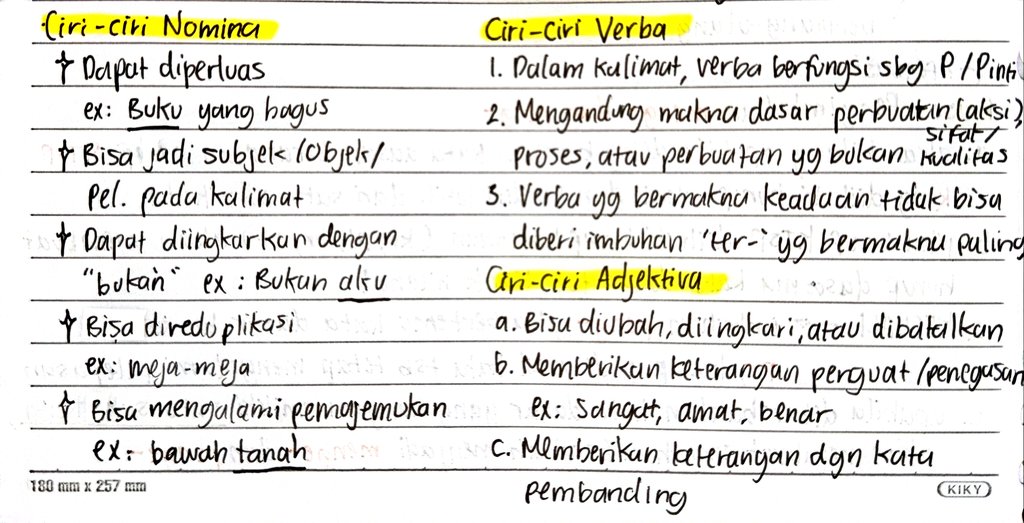 Ciri-ciri Nomina
Dapat diperluas
ex: Buku yang bagus
Bisa jadi subjek/objek/
Pel. pada kalimat
Dapat diingkarkan dengan
"bukan" ex: Bukan aku
Bisa direduplikasi
ex: meja-meja
Bisa mengalami pemajemukan
ex: bawah tanah
180 mm x 257 mm
Ciri-Ciri Verba
1. Dalam kalimat, verba berfungsi sbg P/Pinti
2. Mengandung makna dasar perbuatan (aksi),
proses, atau perbuatan yg bukan sifat/
kualitas
3. Verba yg bermakna keadaan tidak bisa
diberi imbuhan 'ter-' yg bermakna paling
Ciri-Ciri Adjektiva
a. Bisa diubah, diingkari, atau dibatalkan
b. Memberikan keterangan perguat/penegasan
ex: Sangat, amat, benar
c. Memberikan keterangan dgn kata
pembanding
KIKY